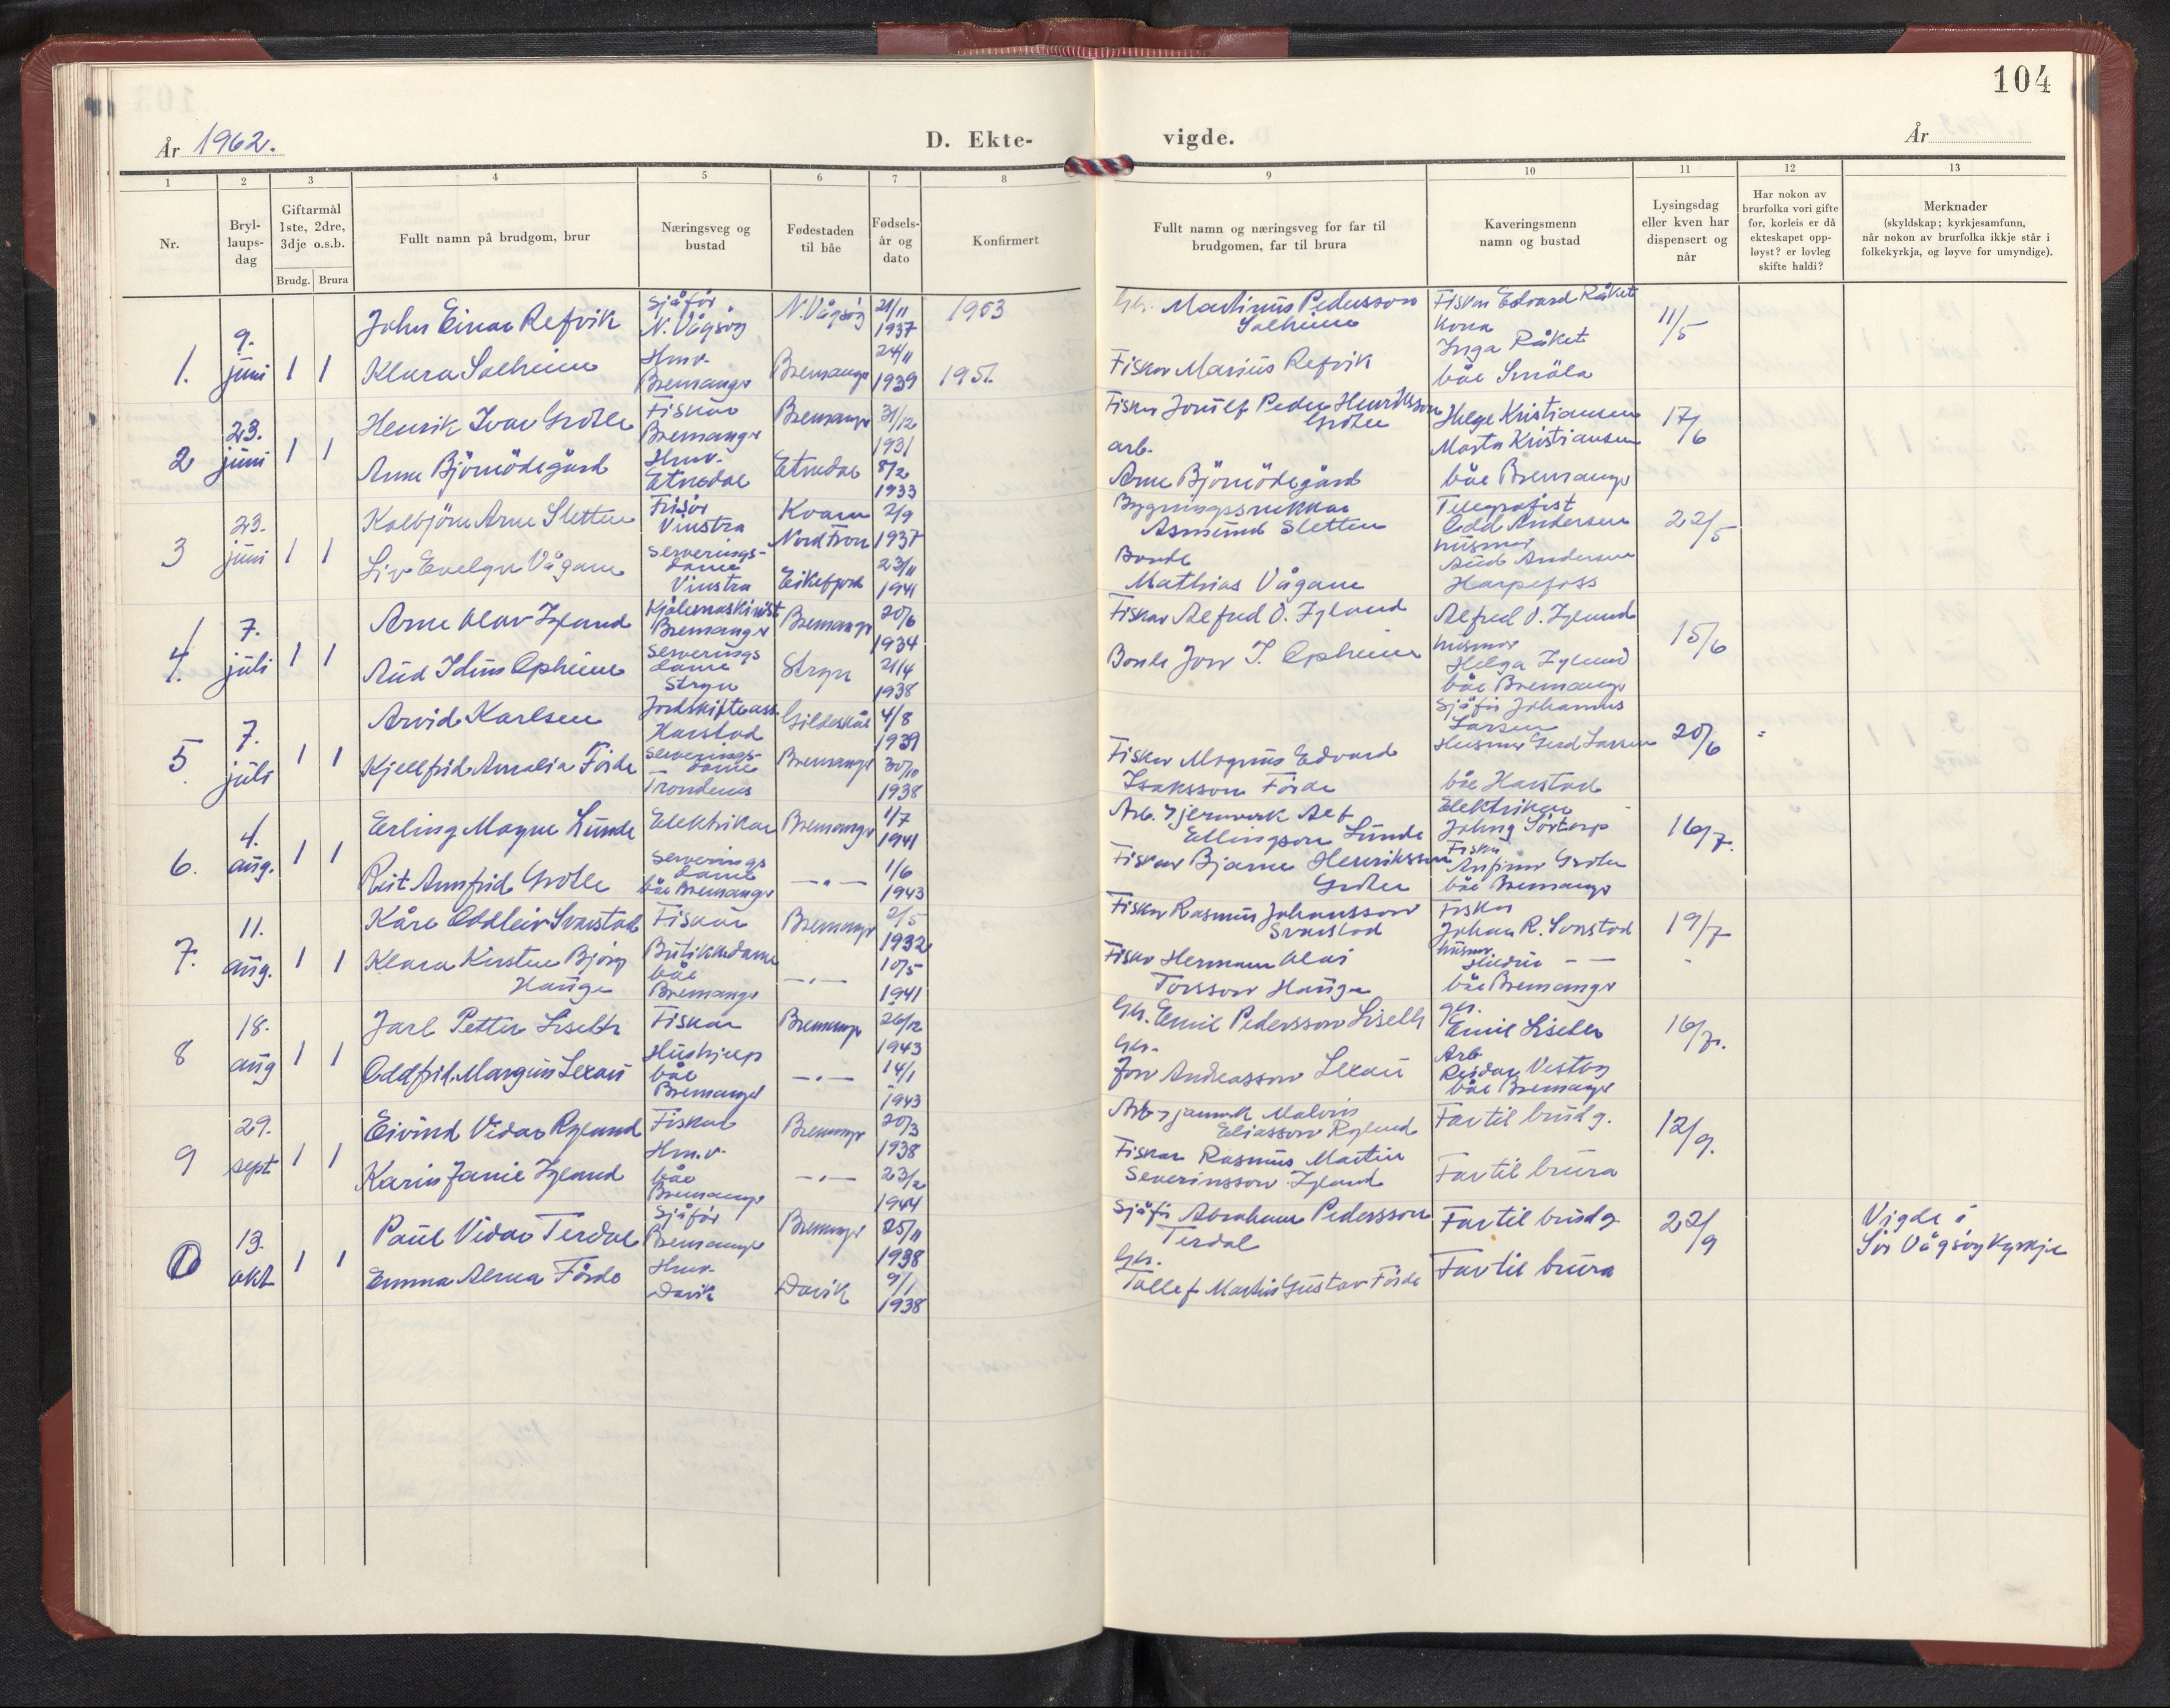 104
År 1962.
D. Ekte-
vigde.
År
1 2 3 4 5 6 7 8 9 10 11 12 13
Nr.
Bryl-
laups-
dag
Giftarmål
1ste, 2dre,
3dje o.s.b.
Brudg. Brura
Fullt namn på brudgom, brur
Næringsveg og
bustad
Fødestaden
til båe
Fødsels-
år og
dato
Konfirmert
Fullt namn og næringsveg for far til
brudgomen, far til brura
Kaveringsmenn
namn og bustad
Lysingsdag
eller kven har
dispensert og
når
Har nokon av
brurfolka vori gifte
før, korleis er då
ekteskapet opp-
løyst? er lovleg
skifte haldi?
Merknader
(skyldskap; kyrkjesamfunn,
når nokon av brurfolka ikkje står i
folkekyrkja, og løyve for umyndige).
1.
9.
juni
1 1
John Einar Refvik
Klara Solheim
Sjåfør
N. Vågsøy
Hmv.
Bremanger
N. Vågsøy
Bremanger
21/11
1937
24/11
1939
1953
1951.
Gbr. Martinus Pedersson
Solheim
Fiskar Marius Refvik
Fiskar Edvard Råket
kona
Inga Råket
båe Smöla
11/5
2
23.
juni
1 1
Henrik Ivar Grotle
Anne Björnödegård
Fiskar
Bremanger
Hmv.
Etnedal
Bremanger
Etnedal
31/12
1931
8/2
1933
Fiskar Jonulf Peder Henriksson
Grotle
arb.
Arne Björnödegård
Helge Kristiansen
Marta Kristiansen
båe Bremanger
17/6
3
23.
juni
1 1
Kolbjörn Arne Sletten
Liv Evelyn Vågane
Frisör
Vinstra
Serverings-
dame
Vinstra
Kvam
Nordfron
Eikefjord
2/9
1937
23/11
1941
Bygningssnekkar
Asmund Sletten
Bonde
Mathias Vågane
Telegrafist
Odd Andersen
husmor
Aud Andersen
Harpefoss
22/5
4.
7.
juli
1 1
Arne Olav Igland
Aud Idun Opheim
Kjølemaskinist
Bremanger
Serverings
dame
Stryn
Bremanger
Stryn
20/6
1934
21/4
1938
Fiskar Alfred O. Igland
Bonde Jon I. Opheim
Alfred O. Igland
husmor
Helga Igland
båe Bremanger
15/6
5
7.
juli
1 1
Arvid Karlsen
Kjellfrid Amalia Förde
Jordskifteass.
Harstad
Serverings-
dame
Trondenes
Gildeskål
Bremanger
4/8
1939
30/10
1938
Fiskar Magnus Edvard
Isaksson Förde
Sjåfør Johannes
Larsen
Husmor Gerd Larsen
båe Harstad
20/6
6.
4.
aug.
1 1
Erling Magne Lunde
Rut Annfrid Grotle
Elektrikar
Serverings
dame
båe Bremanger
Bremanger
— „ —
1/7
1941
1/6
1943
Arb. v/jernverk Alf
Ellingson Lunde
Fiskar Bjarne Henriksson
Grotle
Elektrikar
Fiskar
Anfinn Grotle
båe Bremanger
16/7.
7.
11.
aug.
1 1
Kåre Oddleiv Svarstad
Klara Kirsten Björg
Hauge
Fiskar
Butikkdame
båe
Bremanger
Bremanger
— „ —
2/5
1932
10/5
1941
Fiskar Rasmus Johansson
Svarstad
Fiskar Herman Olai
Torsson Hauge
Fiskar
Johan R. Svarstad
husmor
— —
båe Bremanger
19/7
8
18.
aug
1 1
Jarl Petter Liseth
Oddfrid Margun Lexau
Fiskar
Hushjelp
båe
Bremanger
Bremanger
— „ —
26/12
1943
14/1
1943
Gbr. Emil Pedersson Liseth
Gbr.
Jon Andreasson Lexau
gbr.
Emil Liseth
Arb.
Reidar Vestøy
båe Bremanger
16/7.
9
29.
sept
1 1
Eivind Vidar Rylund
Karin Janie Igland
Fiskar
Hm.v.
båe
Bremanger
Bremanger
— „ —
20/3
1938
23/2
1944
Arb. v/jernverk Malvin
Eliasson Rylund
Fiskar Rasmus Martin
Severinsson Igland
Far til brudg.
Far til brura
12/9.
10
13.
okt
1 1
Paul Vidar Terdal
Emma Alma Förde
Sjåför
Bremanger
Hmv.
Davik
Bremanger
Davik
25/11
1938
9/1
1938
Sjåför Abraham Pedersson
Terdal
Gbr.
Tollef Martin Gustav Förde
Far til brudg.
Far til brura
22/9
Vigde i
Sör Vågsöy Kyrkje